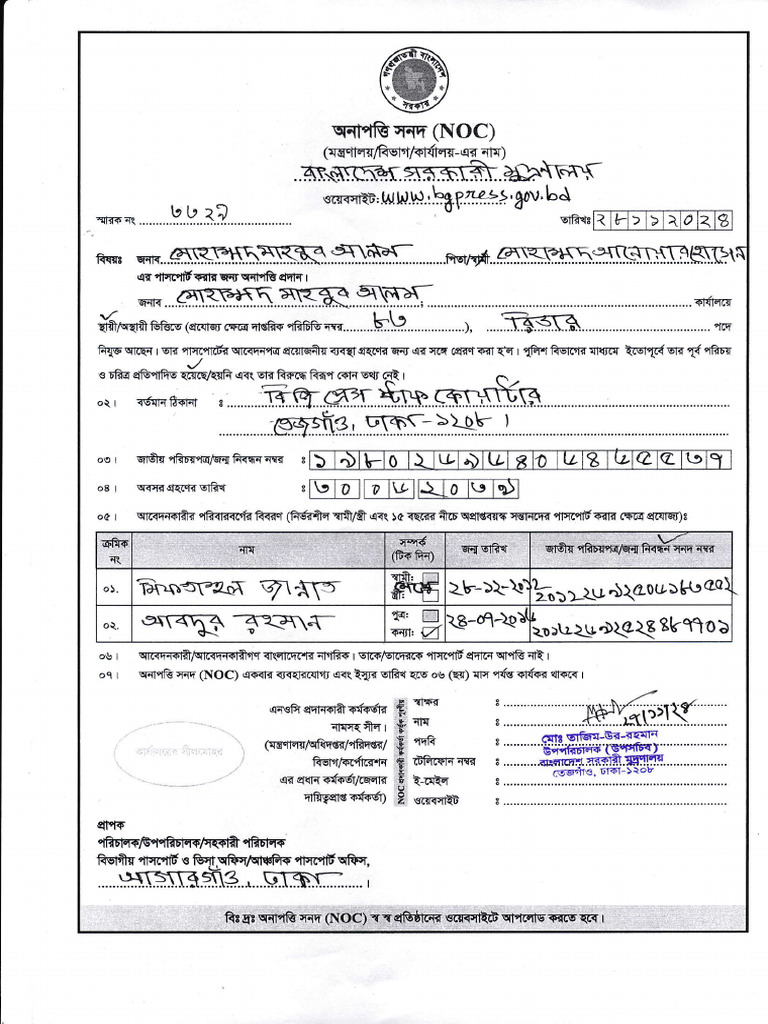 গণপ্রজাতন্ত্রী বাংলাদেশ
সরকার
অনাপত্তি সনদ (NOC)
(মন্ত্রণালয়/বিভাগ/কার্যালয়-এর নাম)
বাংলাদেশ সরকারী মুদ্রণালয়
ওয়েবসাইট: www.bgpress.gov.bd
স্মারক নং ৩৩২৯ তারিখঃ ২৮১১২০২৪
বিষয়ঃ জনাব মোহাম্মদ মাহবুব আলম পিতা/স্বামী মোহাম্মদ আনোয়ার হোসেন
এর পাসপোর্ট করার জন্য অনাপত্তি প্রদান।
জনাব মোহাম্মদ মাহবুব আলম, কার্যালয়ে
স্থায়ী/অস্থায়ী ভিত্তিতে (প্রযোজ্য ক্ষেত্রে দাপ্তরিক পরিচিতি নম্বর ৮৩), রিডার পদে
নিযুক্ত আছেন। তার পাসপোর্টের আবেদনপত্র প্রয়োজনীয় ব্যবস্থা গ্রহণের জন্য এর সঙ্গে প্রেরণ করা হ'ল। পুলিশ বিভাগের মাধ্যমে ইতোপূর্বে তার পূর্ব পরিচয়
ও চরিত্র প্রতিপাদিত হয়েছে/হয়নি এবং তার বিরুদ্ধে বিরূপ কোন তথ্য নেই।
০২। বর্তমান ঠিকানা ঃ বিজি প্রেস স্টাফ কোয়ার্টার
তেজগাঁও, ঢাকা-১২০৮।
০৩। জাতীয় পরিচয়পত্র/জন্ম নিবন্ধন নম্বর ঃ
০৪। অবসর গ্রহণের তারিখ ঃ ৩০০৫২০৩৯
০৫। আবেদনকারীর পরিবারবর্গের বিবরণ (নির্ভরশীল স্বামী/স্ত্রী এবং ১৫ বছরের নীচে অপ্রাপ্তবয়স্ক সন্তানদের পাসপোর্ট করার ক্ষেত্রে প্রযোজ্য)ঃ
ক্রমিক নং নাম সম্পর্ক (টিক দিন) জন্ম তারিখ জাতীয় পরিচয়পত্র/জন্ম নিবন্ধন সনদ নম্বর
০১. মিফতাহুল জান্নাত স্বামী: স্ত্রী: ২৮-১২-২০১২
০২. আবদুর রহমান পুত্র: কন্যা:
০৬। আবেদনকারী/আবেদনকারীগণ বাংলাদেশের নাগরিক। তাকে/তাদেরকে পাসপোর্ট প্রদানে আপত্তি নাই।
০৭। অনাপত্তি সনদ (NOC) একবার ব্যবহারযোগ্য এবং ইস্যুর তারিখ হতে ০৬ (ছয়) মাস পর্যন্ত কার্যকর থাকবে।
কার্যালয়ের সীলমোহর
এনওসি প্রদানকারী কর্মকর্তার
নামসহ সীল।
(মন্ত্রণালয়/অধিদপ্তর/পরিদপ্তর/
বিভাগ/কর্পোরেশন
এর প্রধান কর্মকর্তা/জেলার
দায়িত্বপ্রাপ্ত কর্মকর্তা)
স্বাক্ষর ঃ
২৭/১১/২৪
নাম ঃ
পদবি ঃ
টেলিফোন নম্বর ঃ
ই-মেইল ঃ
ওয়েবসাইট ঃ
মোঃ তাজিম-উর-রহমান
উপপরিচালক (উপসচিব)
বাংলাদেশ সরকারী মুদ্রণালয়
তেজগাঁও, ঢাকা-১২০৮
প্রাপক
পরিচালক/উপপরিচালক/সহকারী পরিচালক
বিভাগীয় পাসপোর্ট ও ভিসা অফিস/আঞ্চলিক পাসপোর্ট অফিস,
আগারগাঁও, ঢাকা।
বিঃ দ্রঃ অনাপত্তি সনদ (NOC) স্ব স্ব প্রতিষ্ঠানের ওয়েবসাইটে আপলোড করতে হবে।